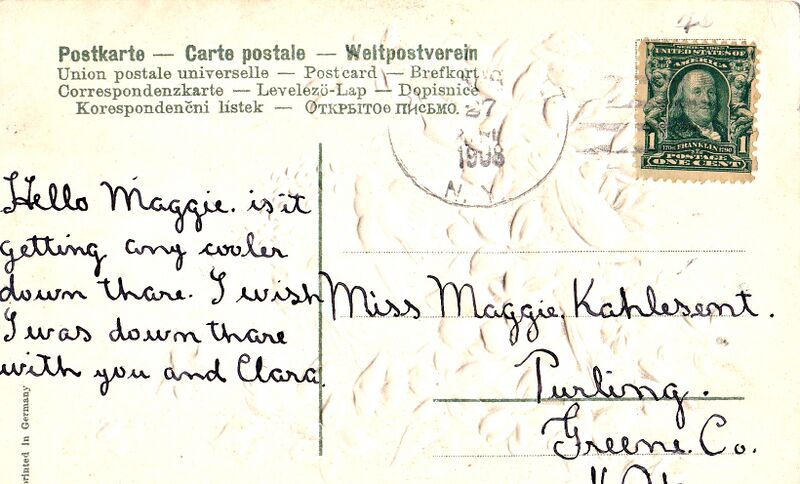 Postkarte — Carte postale — Weltpostverein
Union postale universelle — Postcard — Brefkort
Correspondenzkarte — Levelező-Lap — Dopisnice
Korespondenční lístek — Открытое письмо.
27
1908
N.Y.
SERIES 1902
UNITED STATES OF
AMERICA
1 FRANKLIN 1
POSTAGE
ONE CENT
Hello Maggie. is it
getting any cooler
down thare. I wish
I was down thare
with you and Clara.
Miss Maggie. Kahlesent.
Purling.
Greene. Co.
Printed in Germany